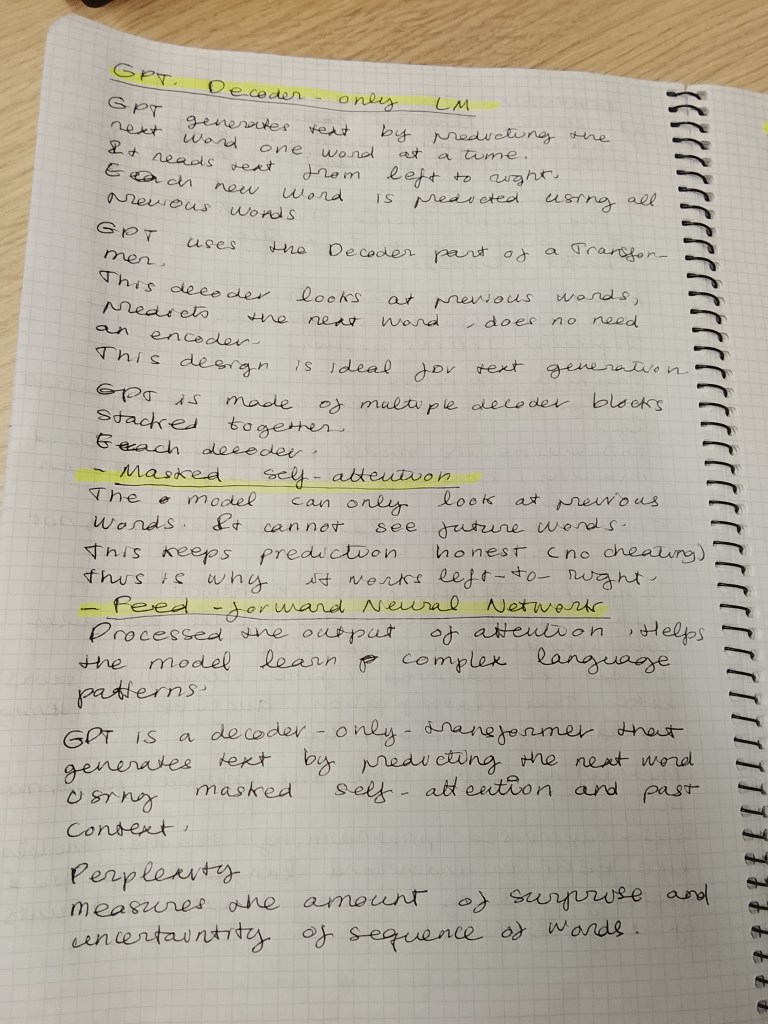 GPT. Decoder-only LM
GPT generates text by predicting the
next word one word at a time.
It reads text from left to right.
Each new word is predicted using all
previous words
GPT uses the Decoder part of a Transfor-
mer.
This decoder looks at previous words,
predicts the next word, does no need
an encoder.
This design is ideal for text generation
GPT is made of multiple decoder blocks
stacked together.
Each decoder.
- Masked self-attention
The model can only look at previous
words. It cannot see future words.
this keeps prediction honest (no cheating)
this is why it works left-to-right.
- Feed-forward Neural Network
Processed the output of attention, Helps
the model learn complex language
patterns.
GPT is a decoder-only-transformer that
generates text by predicting the next word
using masked self-attention and past
context.
Perplexity
measures the amount of surprise and
uncertaintity of sequence of words.